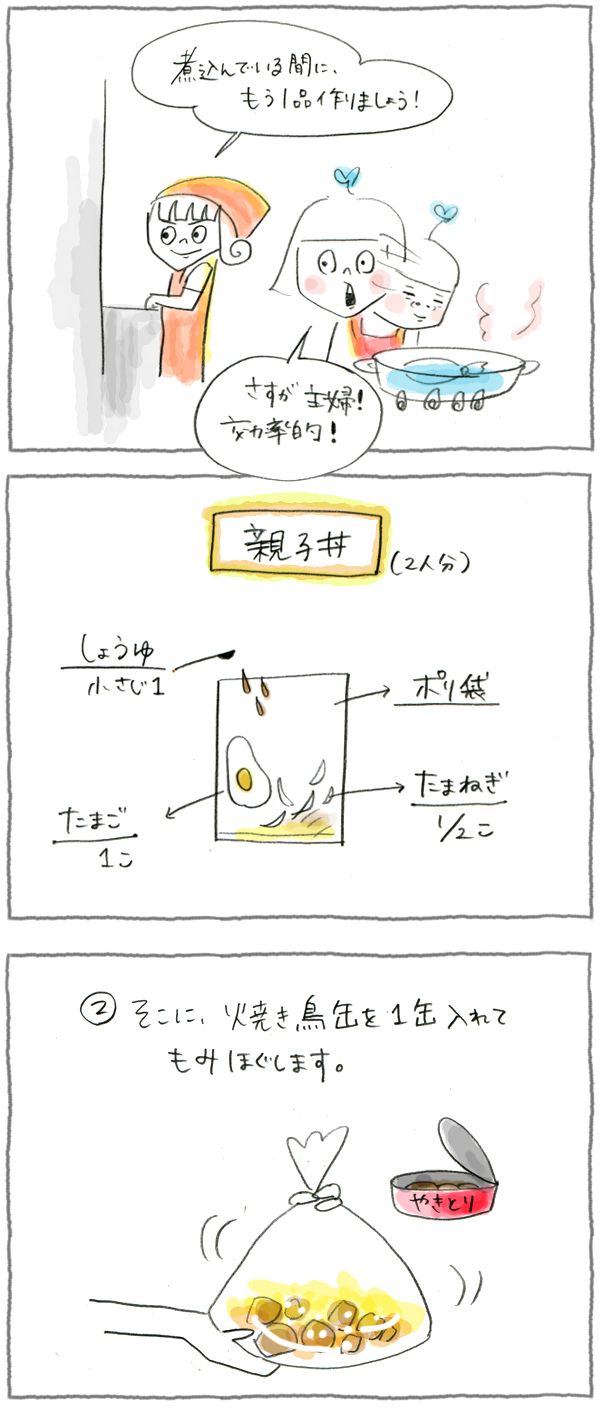 煮込んでいる間に、
もう1品作りましょう！
さすが主婦！
効率的！
親子丼
(2人分)
しょうゆ
小さじ1
ポリ袋
たまご
1こ
たまねぎ
1/2こ
② そこに、焼き鳥缶を1缶入れて
もみほぐします。
やきとり